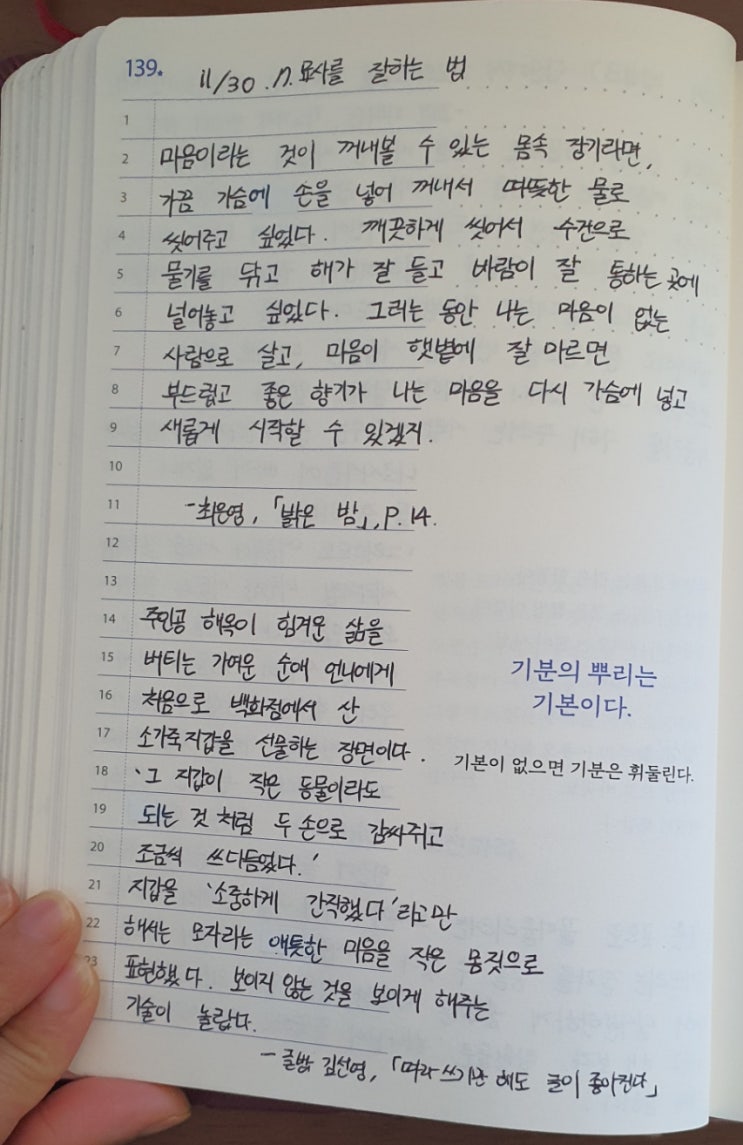 139.
11/30. 17. 묘사를 잘하는 법
1
2 마음이라는 것이 꺼내볼 수 있는 몸속 장기라면,
3 가끔 가슴에 손을 넣어 꺼내서 따뜻한 물로
4 씻어주고 싶었다. 깨끗하게 씻어서 수건으로
5 물기를 닦고 해가 잘 들고 바람이 잘 통하는 곳에
6 널어놓고 싶었다. 그러는 동안 나는 마음이 없는
7 사람으로 살고, 마음이 햇볕에 잘 마르면
8 부드럽고 좋은 향기가 나는 마음을 다시 가슴에 넣고
9 새롭게 시작할 수 있겠지.
10
11 -최은영, 「밝은 밤」, P.14.
12
13
14 주인공 해옥이 힘겨운 삶을
15 버티는 가여운 순애 언니에게
16 처음으로 백화점에서 산
17 소가죽지갑을 선물하는 장면이다.
18 '그 지갑이 작은 동물이라도
19 되는 것 처럼 두 손으로 감싸쥐고
20 조금씩 쓰다듬었다.'
21 지갑을 '소중하게 간직했다'라고만
22 해서는 모자라는 애틋한 마음을 작은 몸짓으로
23 표현했다. 보이지 않는 것을 보이게 해주는
기술이 놀랍다.
- 글밥 김선영, 「따라 쓰기만 해도 글이 좋아진다」
기분의 뿌리는
기본이다.
기본이 없으면 기분은 휘둘린다.